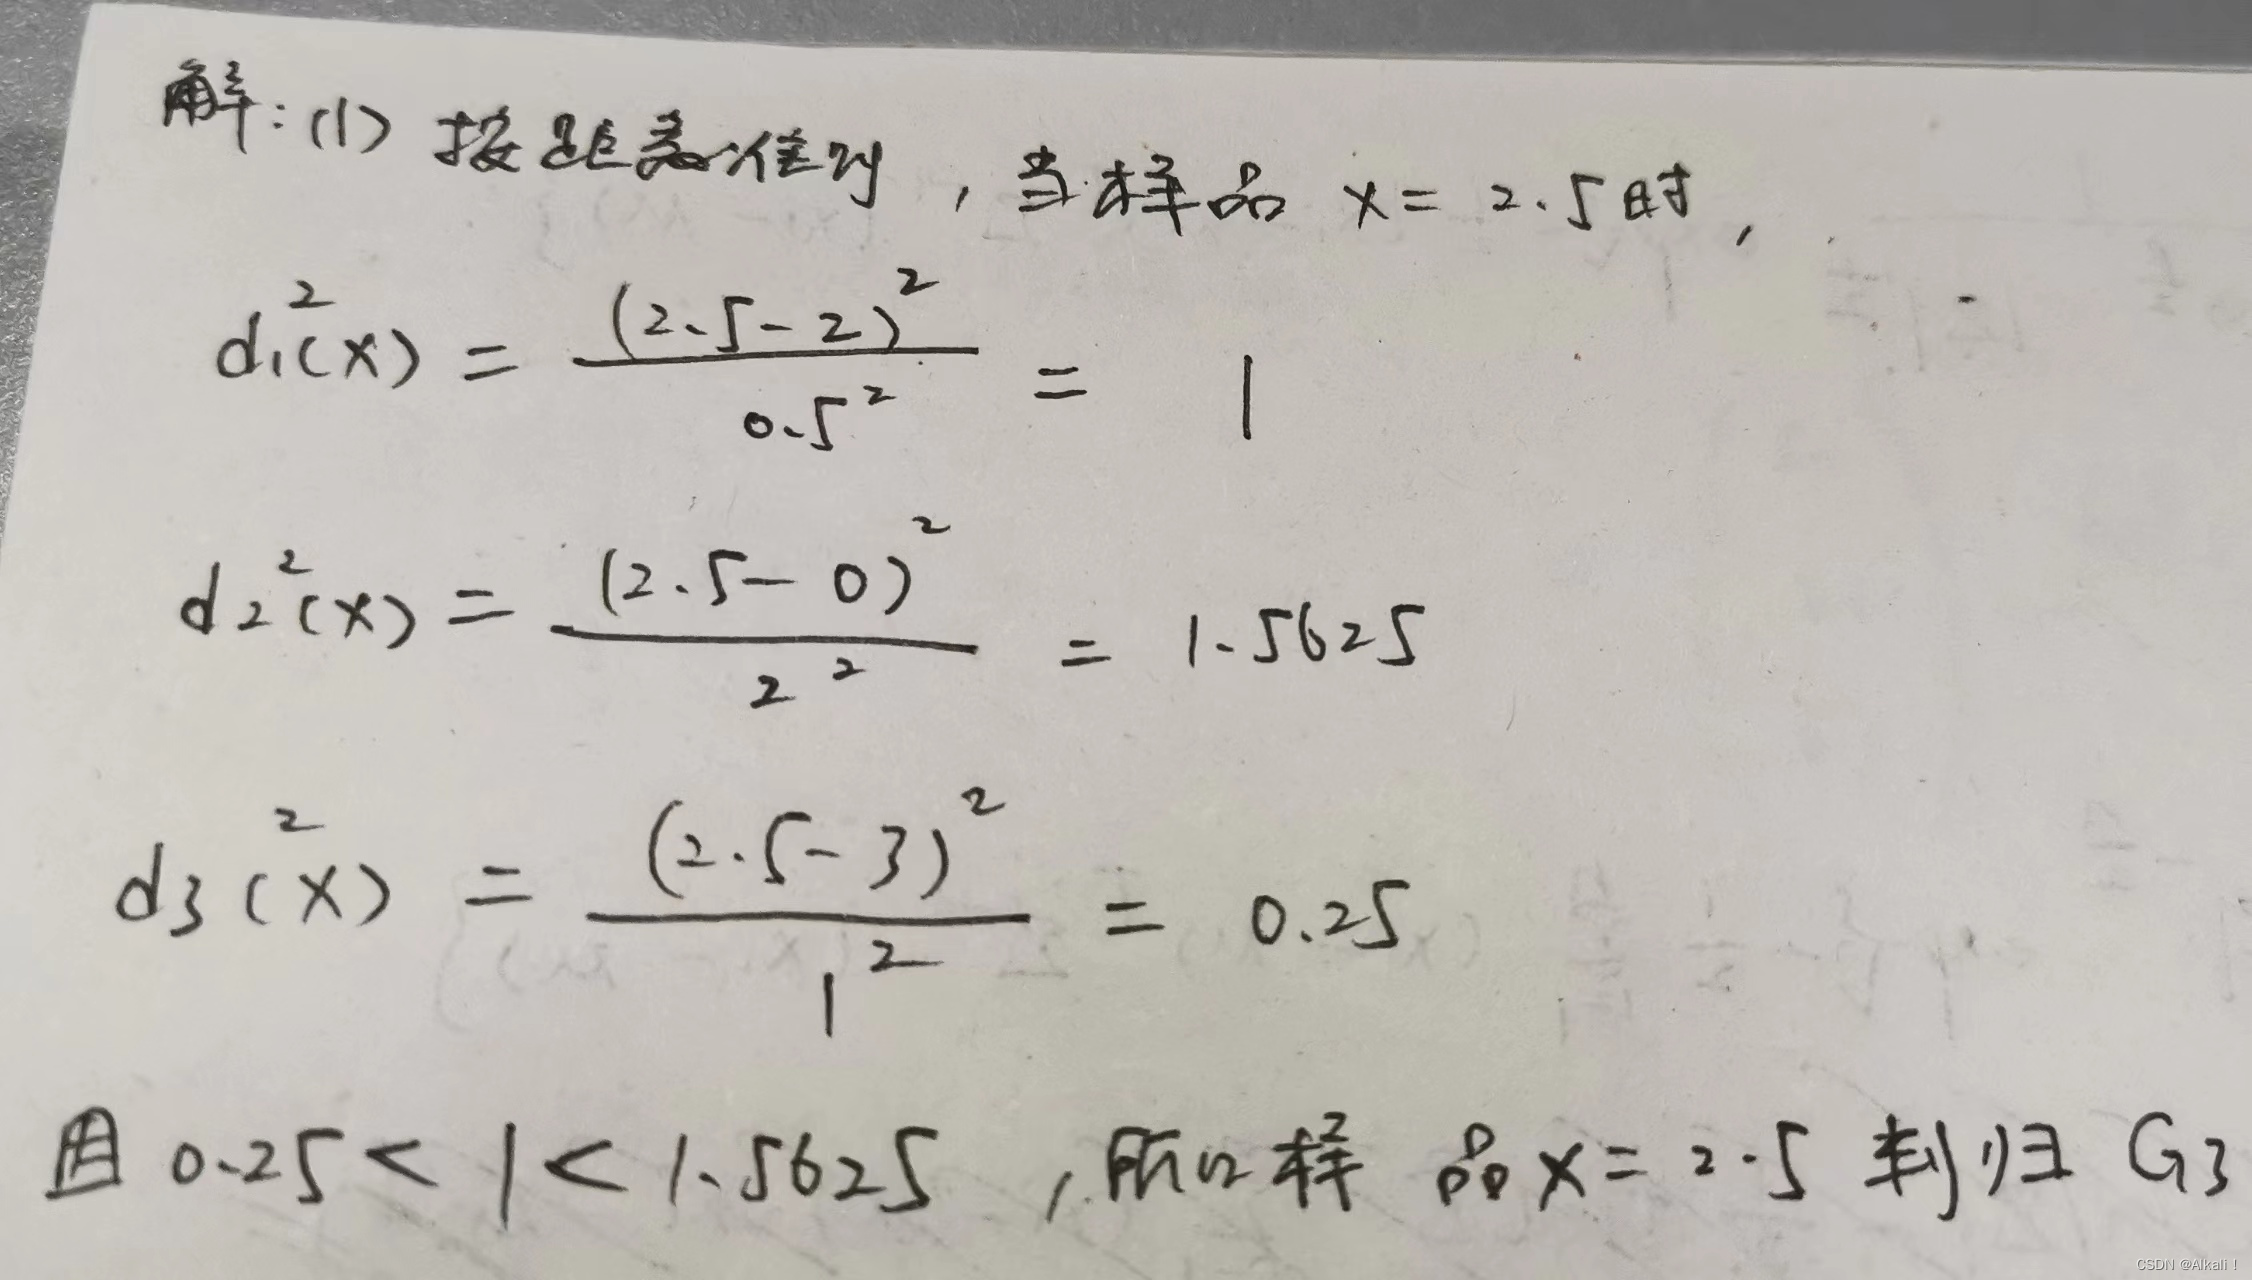 解:(1) 按距离准则，当样品 x = 2.5时，
d₁²(x) = (2.5-2)² / 0.5² = 1
d₂²(x) = (2.5-0)² / 2² = 1.5625
d₃²(x) = (2.5-3)² / 1² = 0.25
因 0.25 < 1 < 1.5625，所以样品 x = 2.5 判归 G₃
CSDN @Alkali！